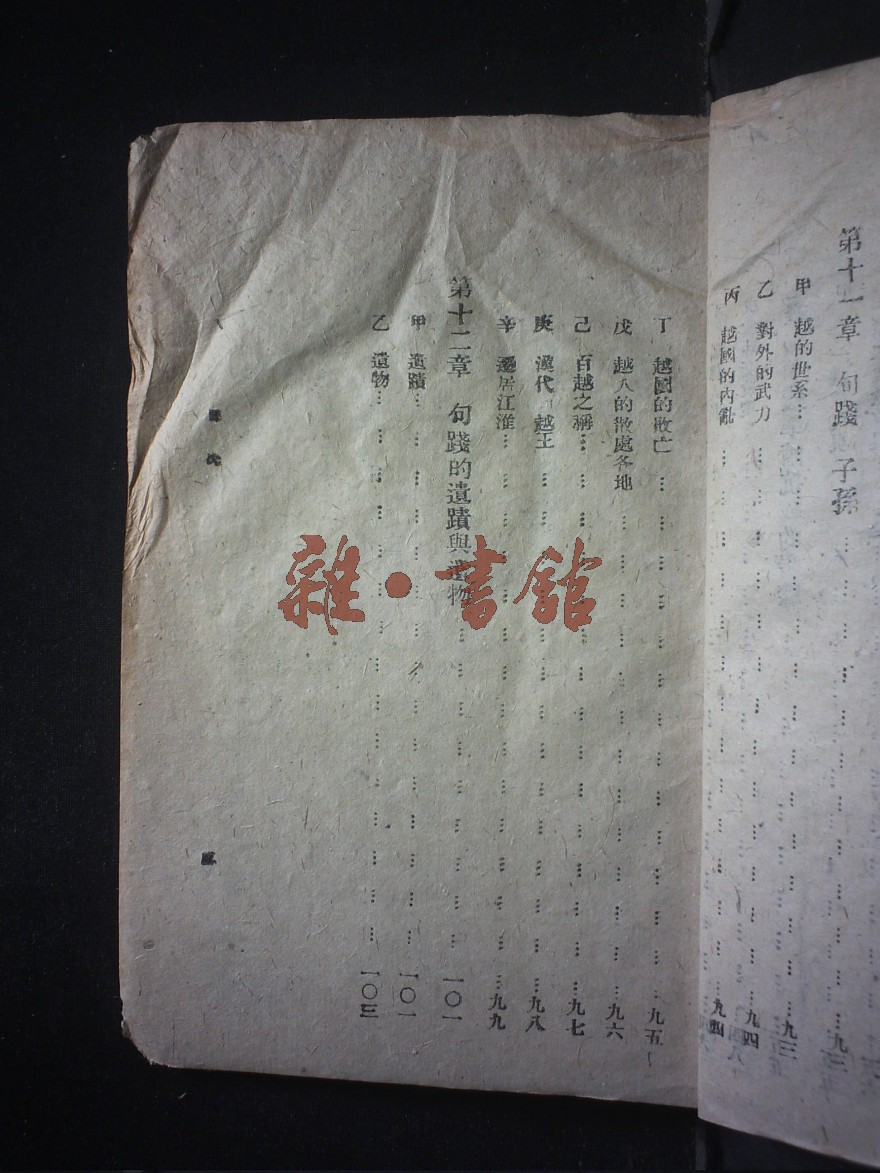 第十一章 句踐 子孫 … 九三
甲 越的世系 … 九三
乙 對外的武力 … 九四
丙 越國的內亂 … 九四
丁 越國的敗亡 … 九五
戊 越人的散處各地 … 九六
己 百越之稱 … 九七
庚 漢代 越王 … 九八
辛 遷居江淮 … 九九
第十二章 句踐的遺蹟與遺物 … 一〇一
甲 遺蹟 … 一〇一
乙 遺物 … 一〇三
雜·書舘